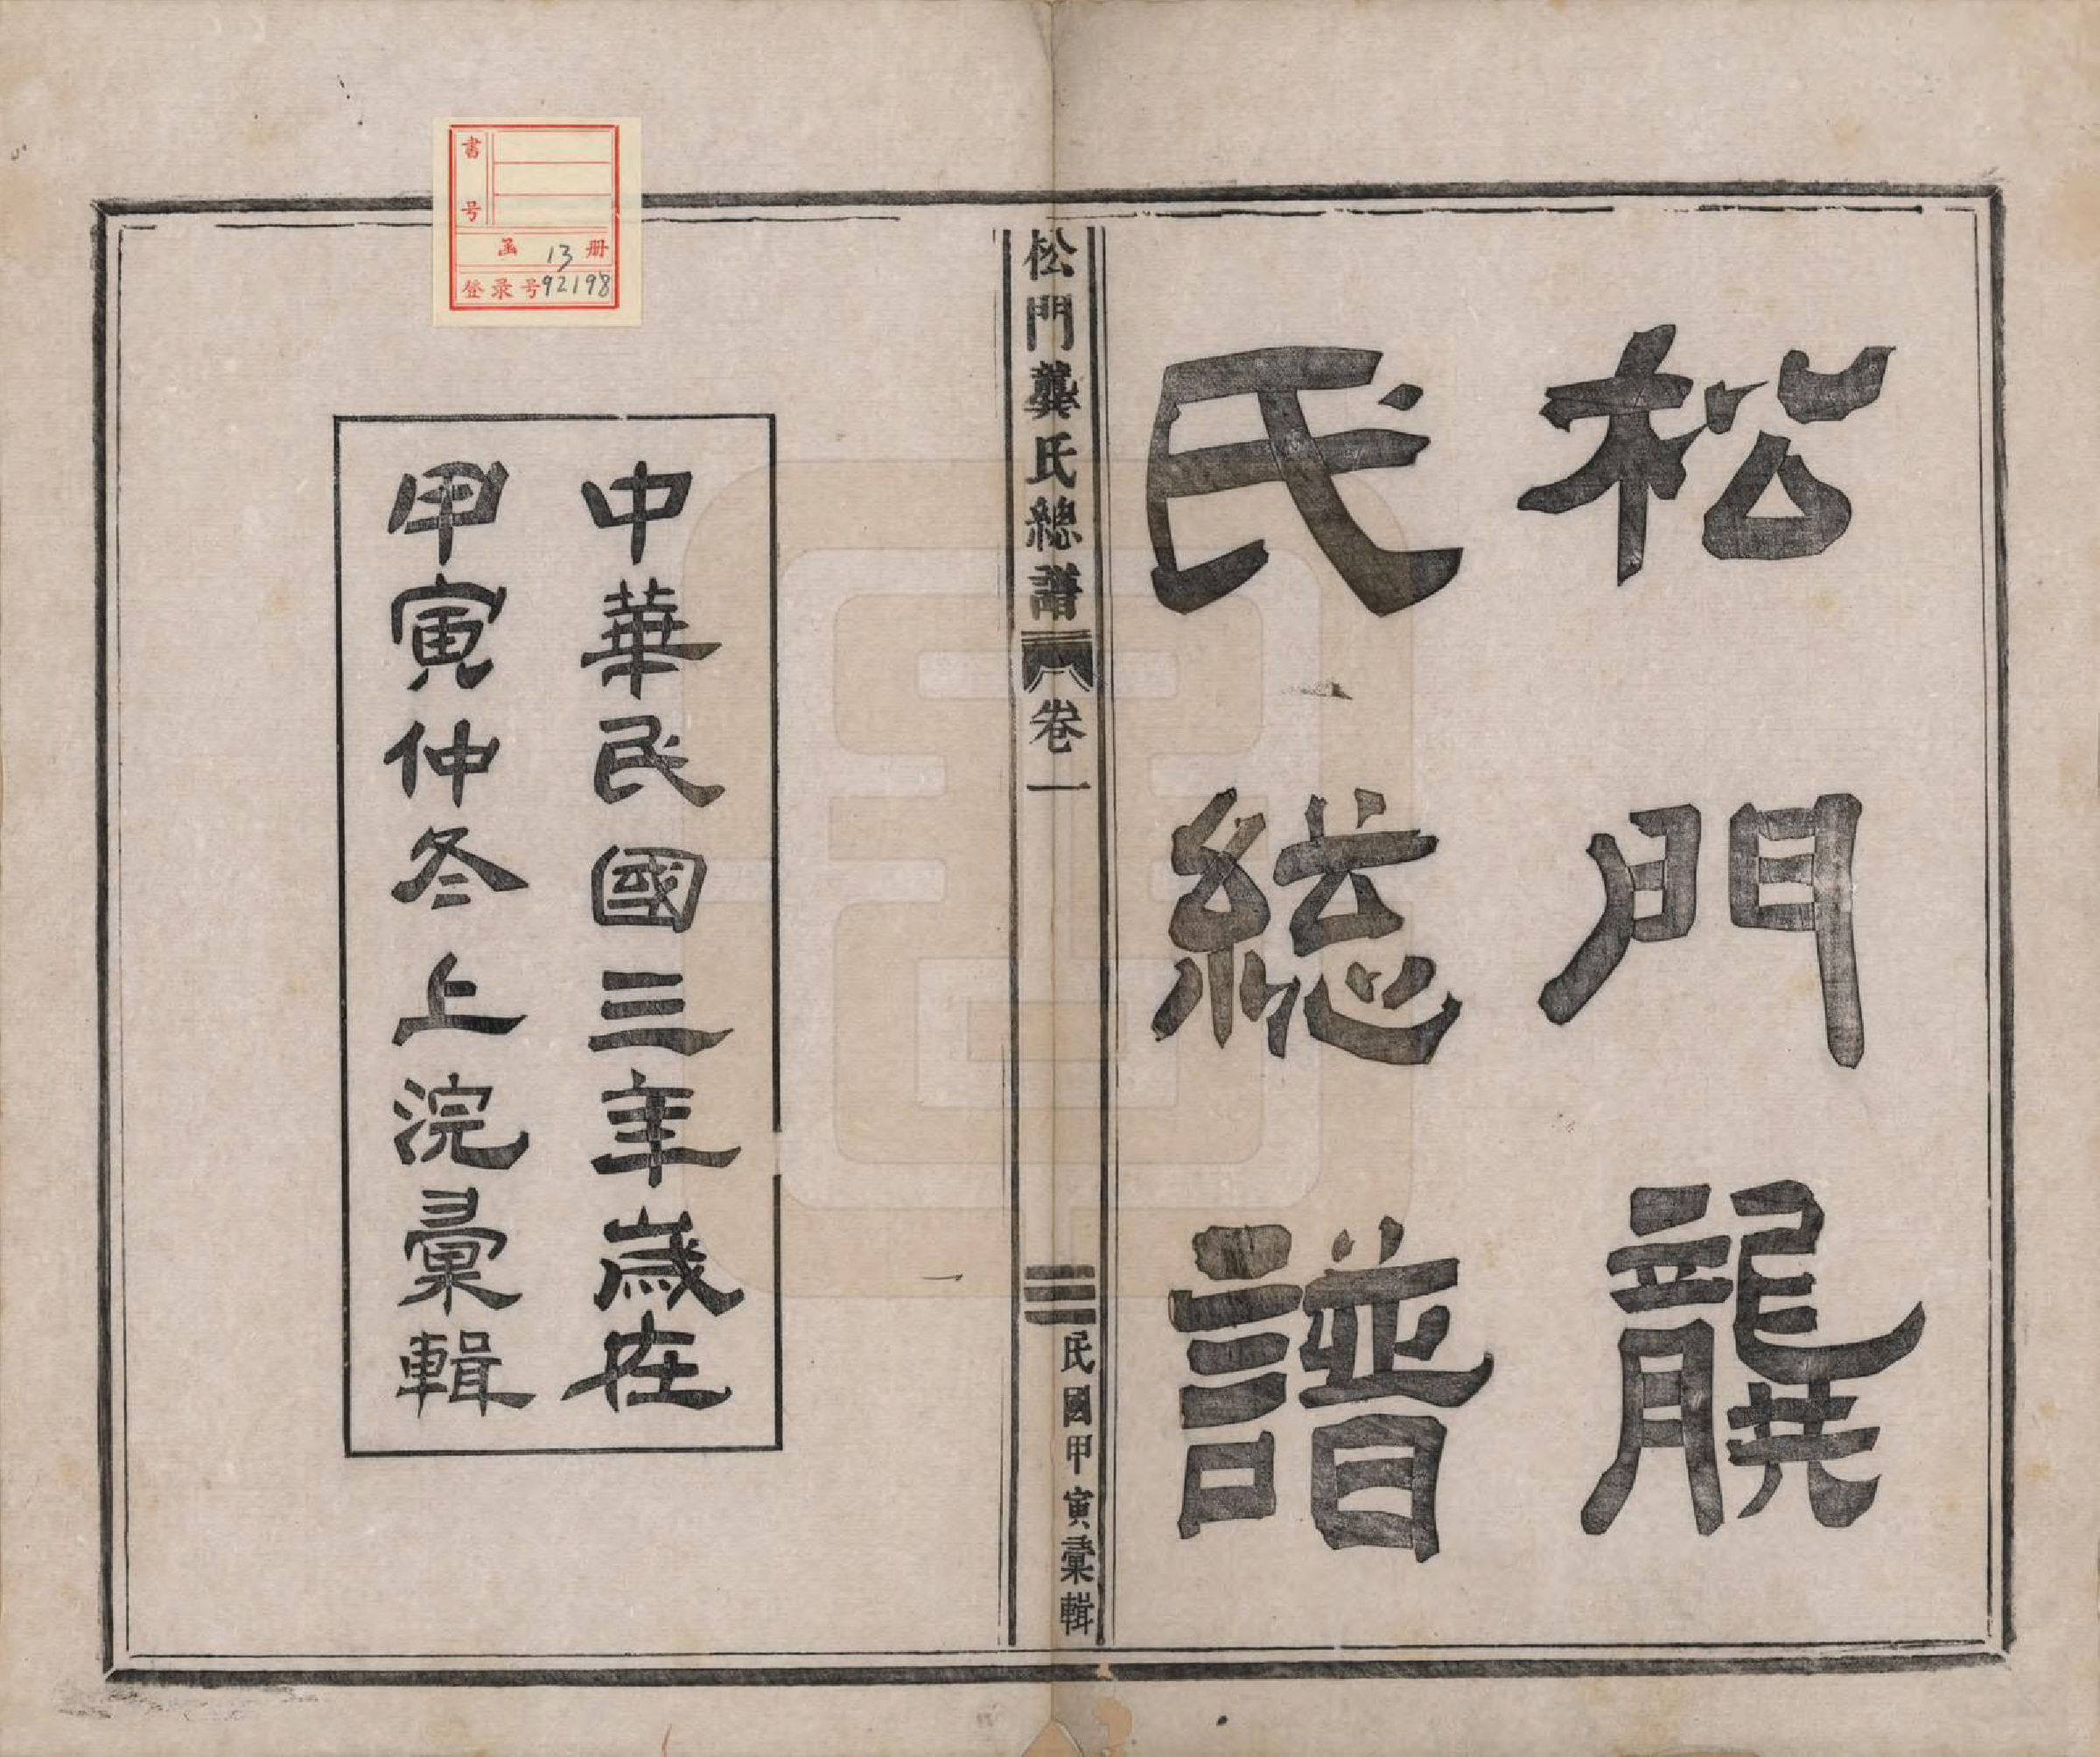 松門龔
氏總譜
松門龔氏總譜 卷一
民國甲寅彙輯
中華民國三年歲在
甲寅仲冬上浣彙輯
書号
函 13 册
登录号92198